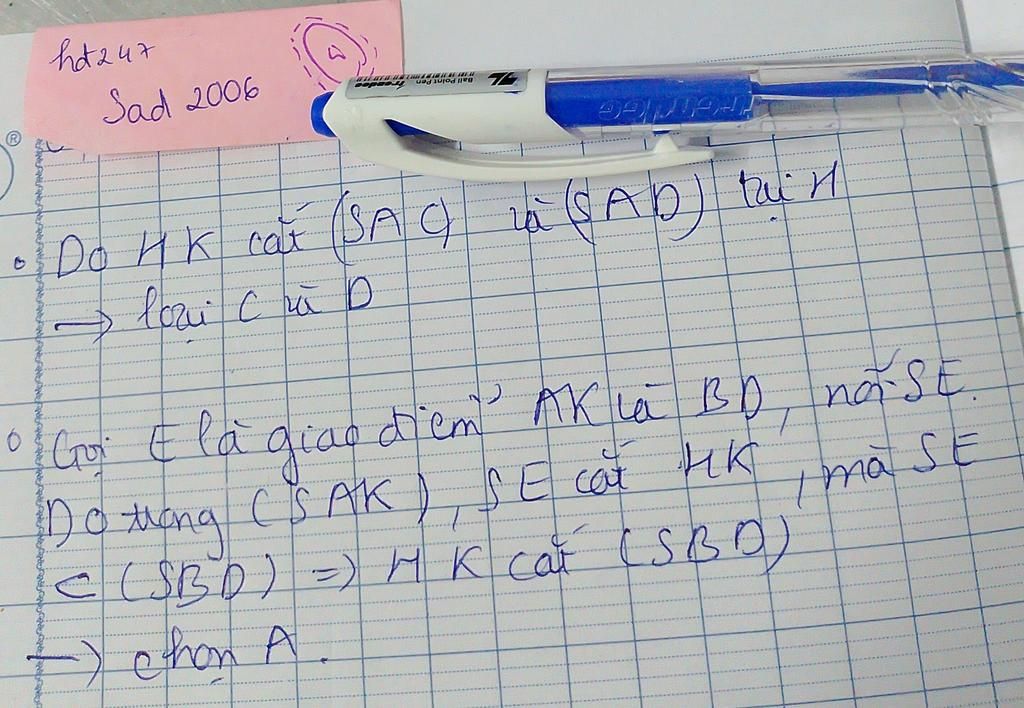 hdt247
Sad 2006
Ball Point Pen
®
• Do HK cắt (SAC) và (SAD) tại H
→ loại C và D
• Gọi E là giao điểm AK và BD, nối SE.
Do trong (SAK), SE cắt HK, mà SE
⊂ (SBD) => HK cắt (SBD)
→ chọn A.